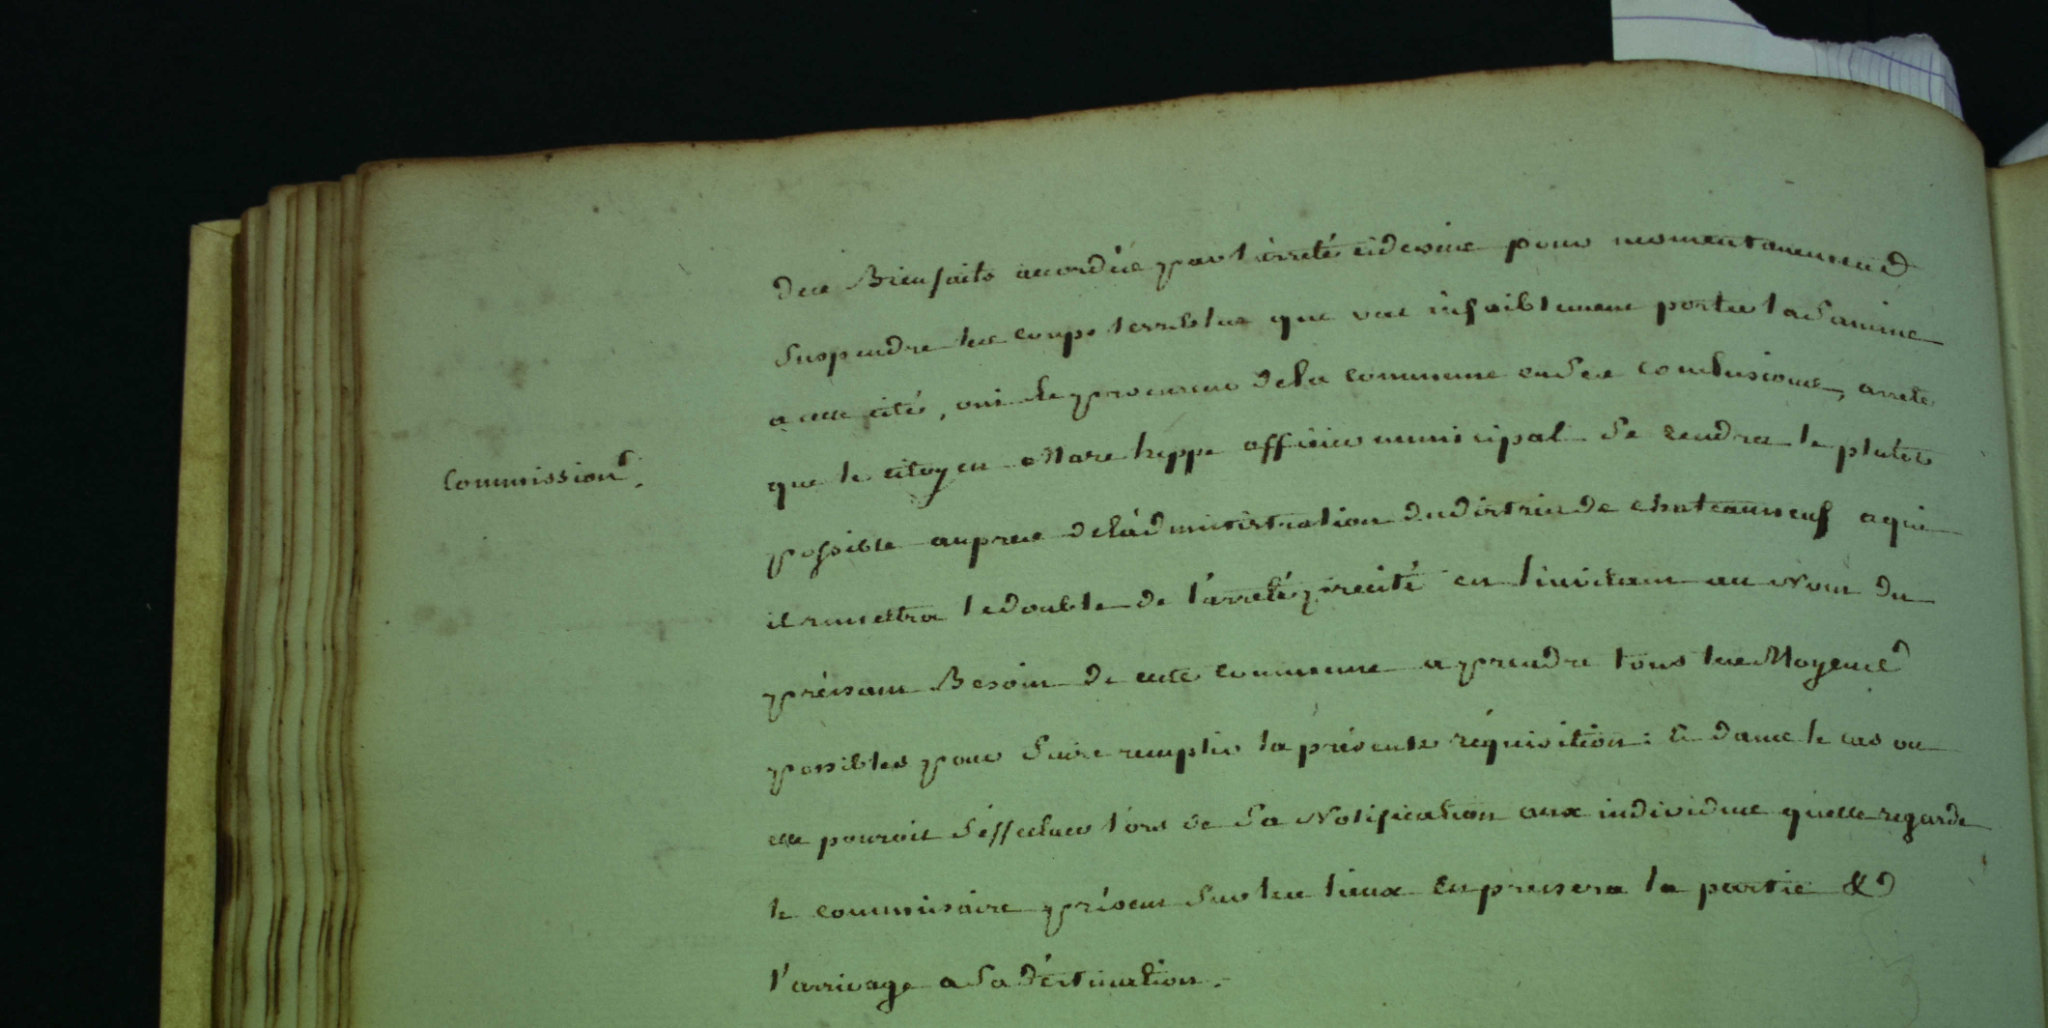 des Bienfaits accordés par l'arreté cidessus pour momentanement
suspendre les coups terribles que vat infaiblement porter la famine
a cette cité, oui le procureur dela commune en ses conclusions, arrete
que le citoyen Marc heppe officier municipal se rendra le plutot
Commission.
possible aupres deládministration du district de chateauneuf a qui
il remettra le double de l'arreté précité en l'invitant au Nom du
préssant Besoin de cette commune a prendre tous les Moyens
possibles pour faire remplir la présente réquisition: Et dans le cas ou
elle pouroit s'éffectuer lors de sa Notification aux individus quelle regarde
le commissaire présent sur les lieux en pressera la partie &
l'arrivage a sa déstination.